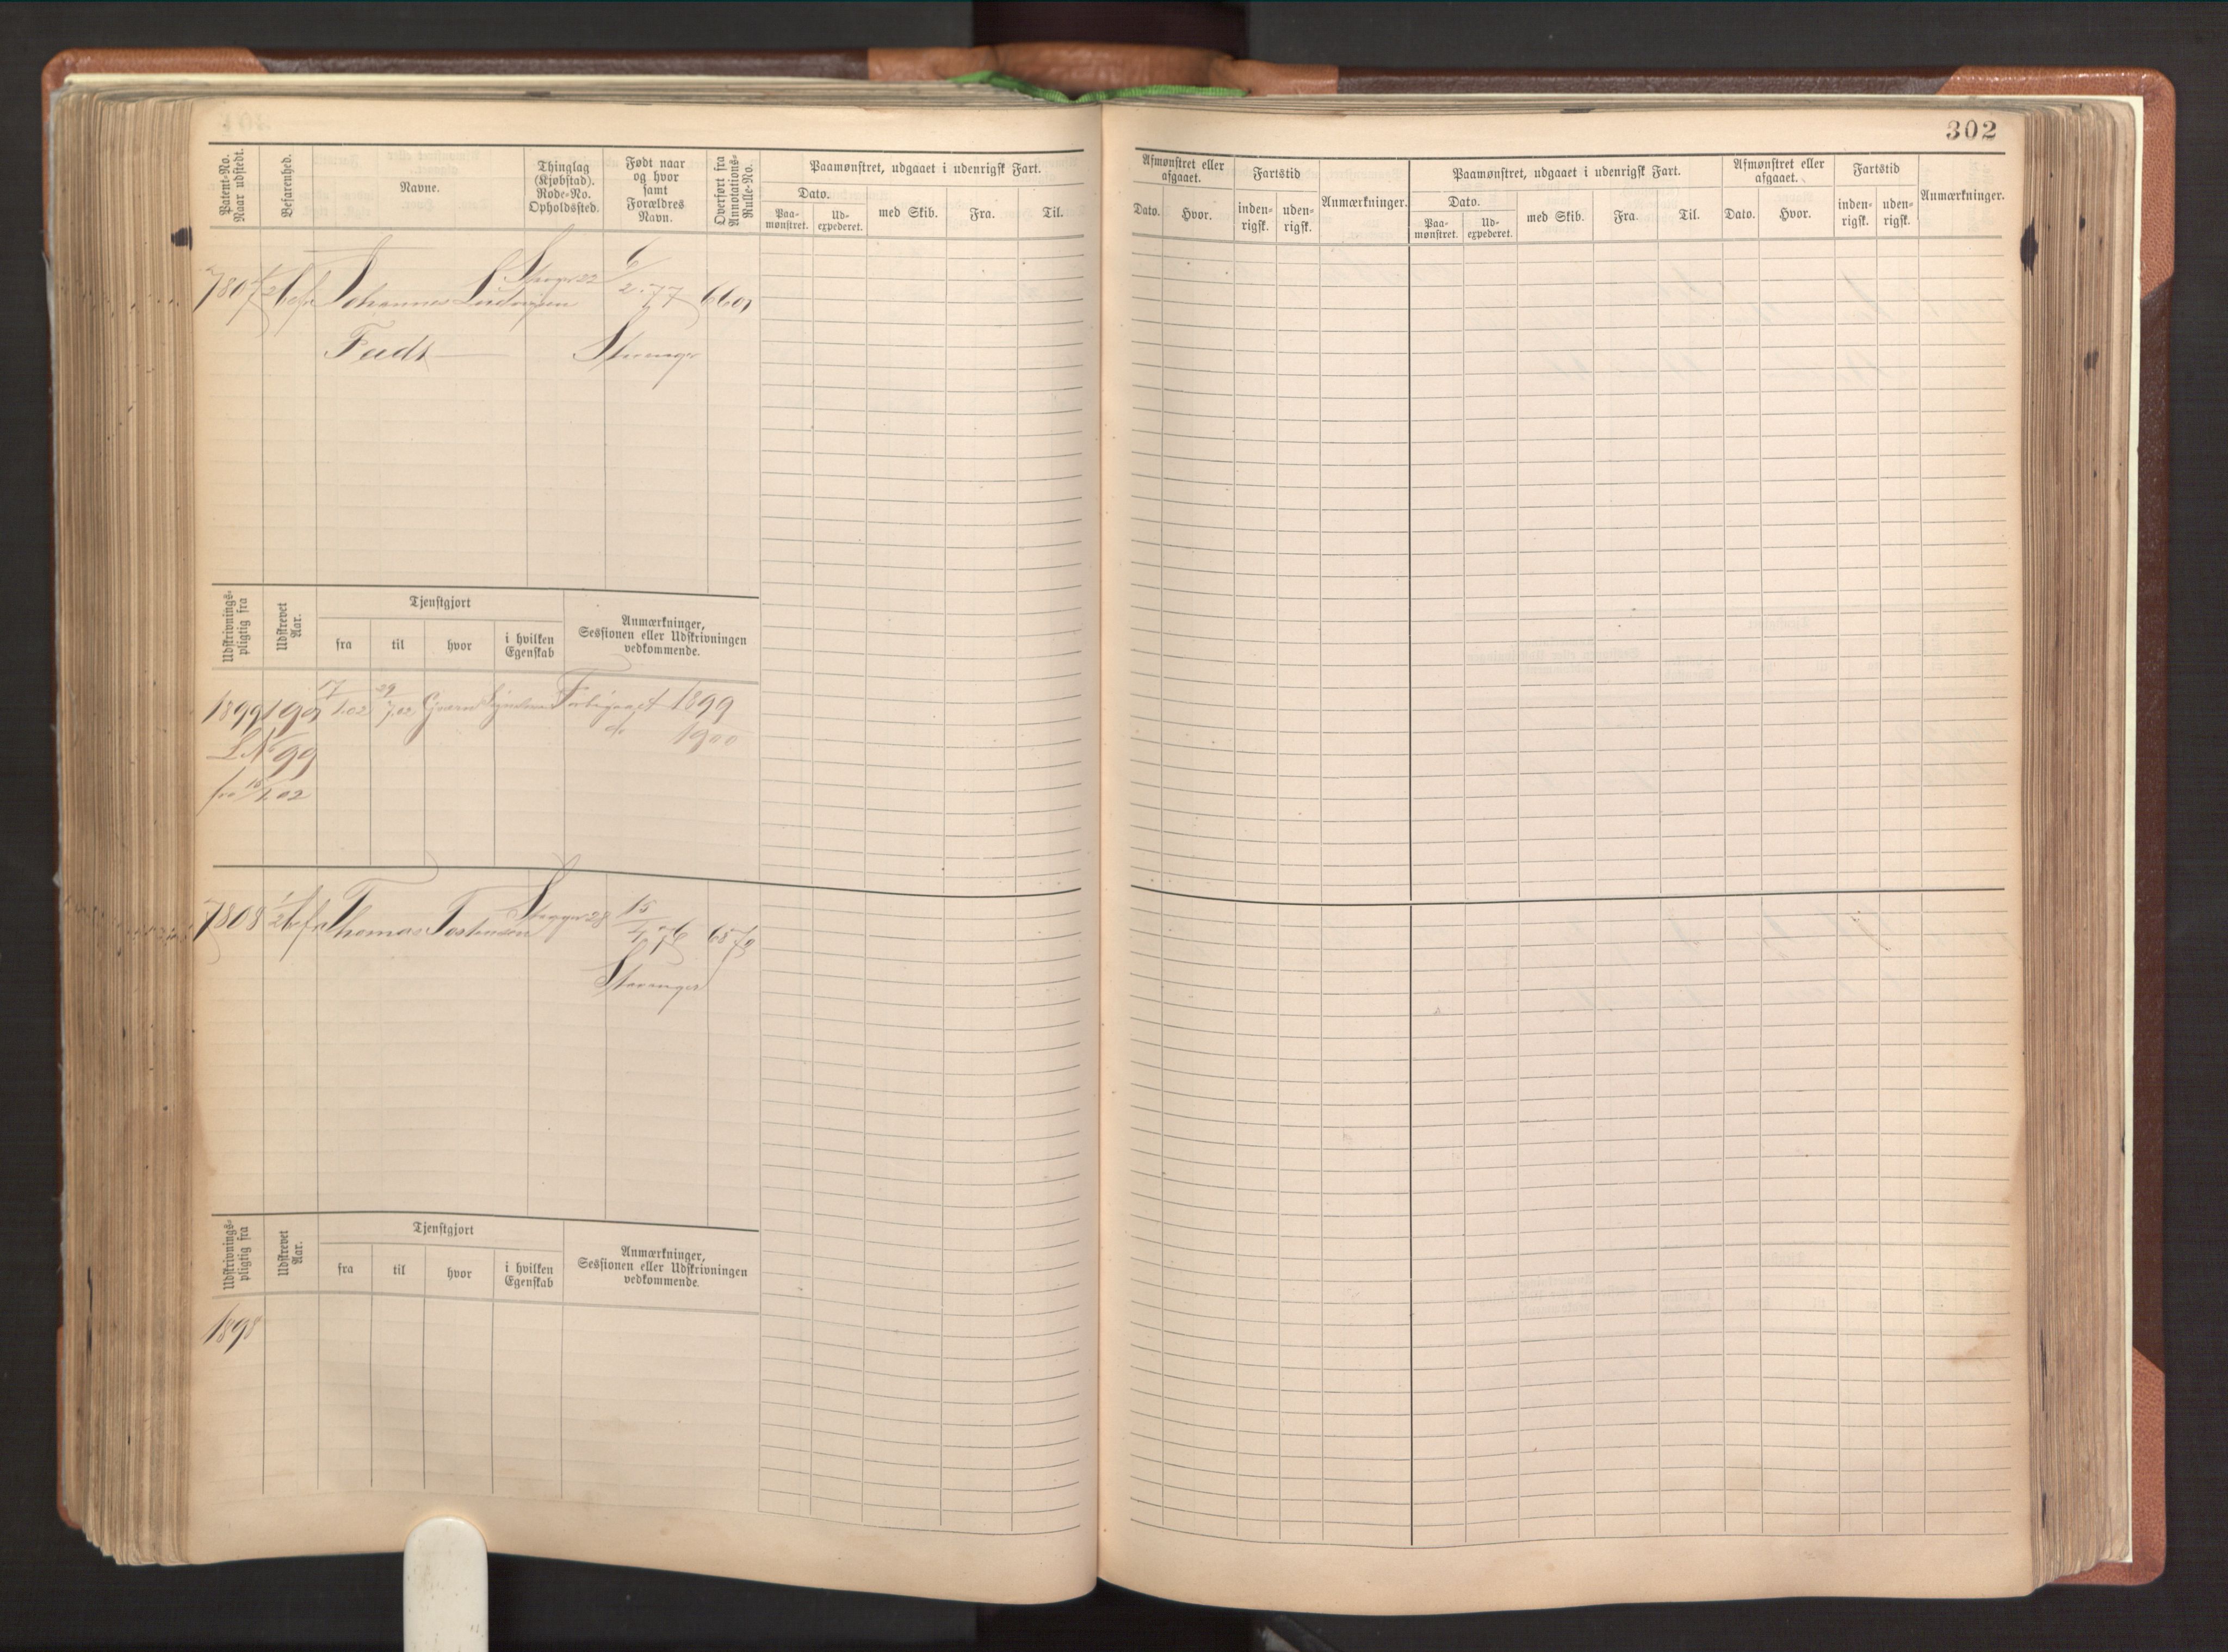 302
Patent-No. Naar udstedt.
Befarenhed.
Navne.
Thinglag (Kjøbstad). Rode-No. Opholdssted.
Født naar og hvor samt Forældres Navn.
Overført fra Annotations-Rulle-No.
Paamønstret, udgaaet i udenrigsk Fart.
Dato.
Paa-mønstret.
Ud-expederet.
med Skib.
Fra.
Til.
Afmønstret eller afgaaet.
Dato.
Hvor.
Fartstid
inden-rigsk.
uden-rigsk.
Anmærkninger.
Paamønstret, udgaaet i udenrigsk Fart.
Dato.
Paa-mønstret.
Ud-expederet.
med Skib.
Fra.
Til.
Afmønstret eller afgaaet.
Dato.
Hvor.
Fartstid
inden-rigsk.
uden-rigsk.
Anmærkninger.
7807 1/2 befn Johannes Ludvigsen 22 6/2 77
Stavanger
Udskrivnings-pligtig fra
Udskrevet Aar.
Tjenstgjort
fra
til
hvor
i hvilken Egenskab
Anmærkninger, Sessionen eller Udskrivningen vedkommende.
1899 17/1.02 29/7.02 Forbigaaet 1899
do 1900
L No 99
fra 16/1.02
7808 1/2 befn Thomas Torstensen 28 15/4 76
Stavanger
Udskrivnings-pligtig fra
Udskrevet Aar.
Tjenstgjort
fra
til
hvor
i hvilken Egenskab
Anmærkninger, Sessionen eller Udskrivningen vedkommende.
1898